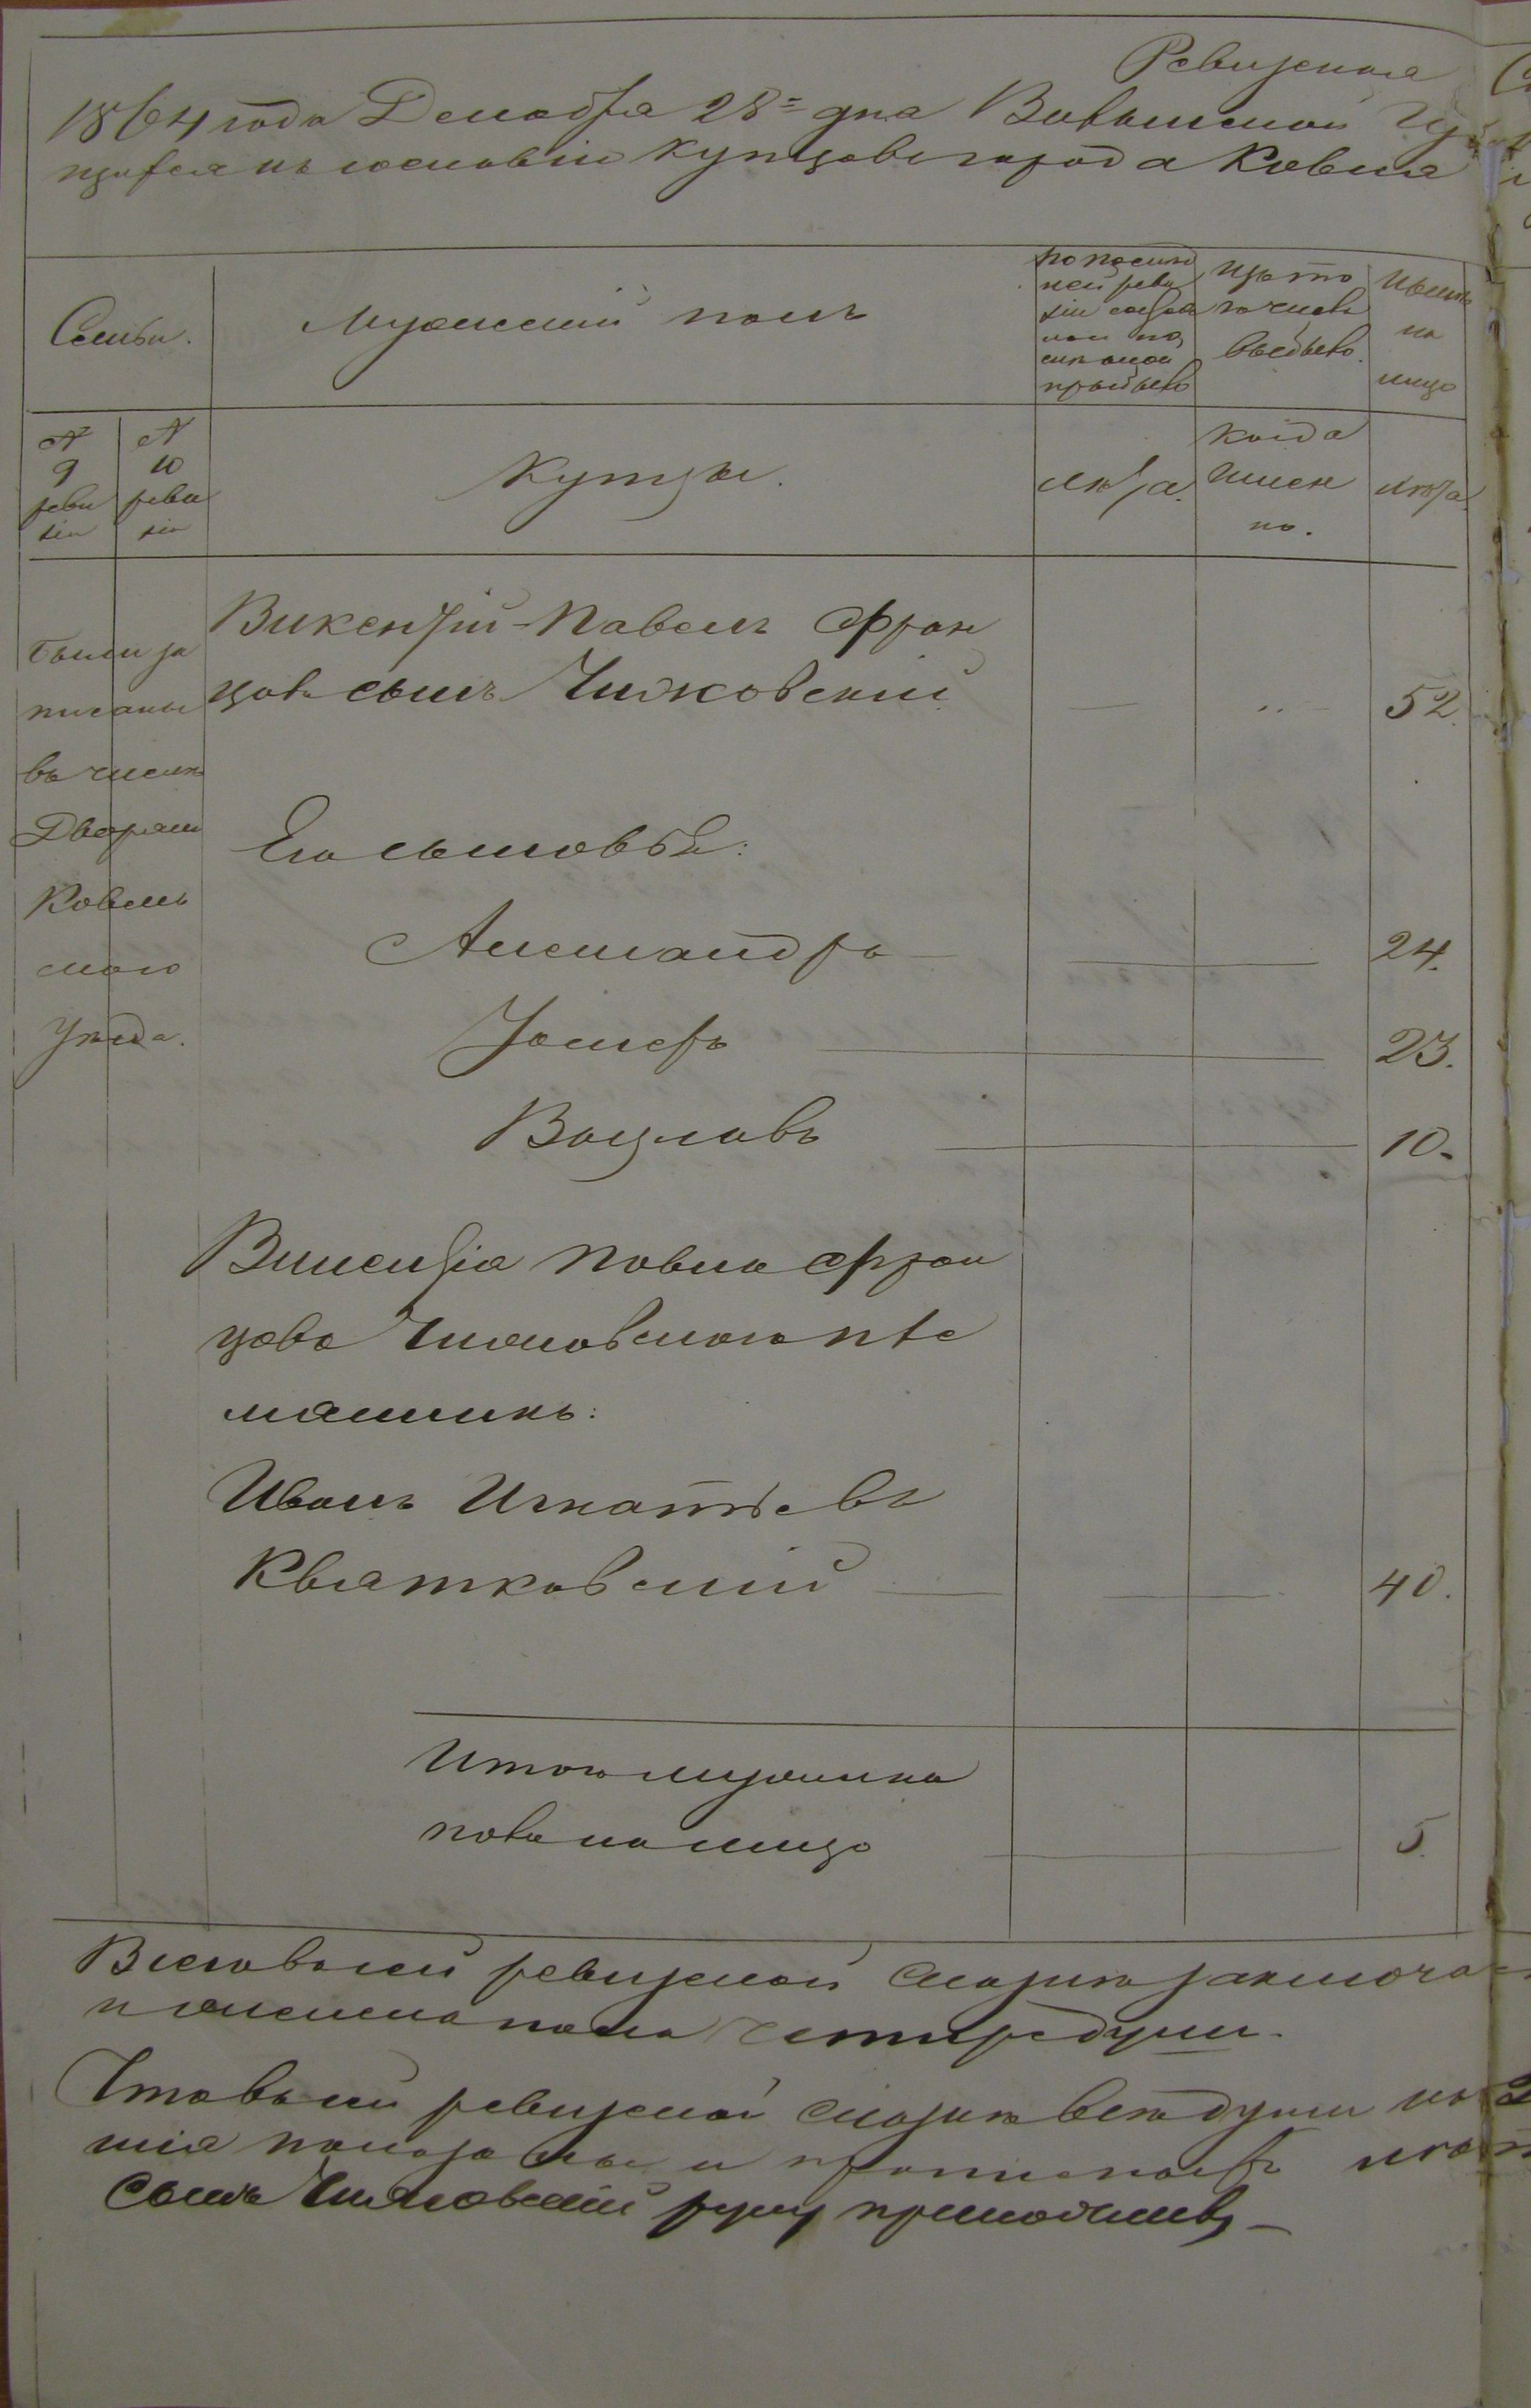 Ревизская
1864 года Декабря 28 = дня Волынской Гу
цихся въ сословіи купцовъ города Ковля
Семьи.
Мужескій полъ
по послѣд
ней реви
зіи состоя
ло и по
слѣ оной
прибыло
Изъ то
го числа
выбыло.
Нынѣ
на
лицо
№ 9 реви зіи
№ 10 реви зіи
Купцы.
Лѣта.
когда
имен
но.
Лѣта.
Были за
писаны
въ числѣ
Дворянъ
Ковель
скаго
Уѣзда.
Викентій-Павелъ Фран
цовъ сынъ Чижовскій 52.
Его сыновья:
Александръ 24.
Іосифъ 23.
Вацлавъ 10.
Викентія Павла Фран
цова Чижовскаго пле
мянникъ:
Иванъ Игнатьевъ
Квятковскій 40.
Итого мужеска
пола на лицо 5.
Въ сей ревизской сказкѣ заключа
и женска пола четыре души.
Что въ сей ревизской сказкѣ всѣ души на
шія показаны и прописныхъ нѣт
сынъ Чижовскій руку приложилъ